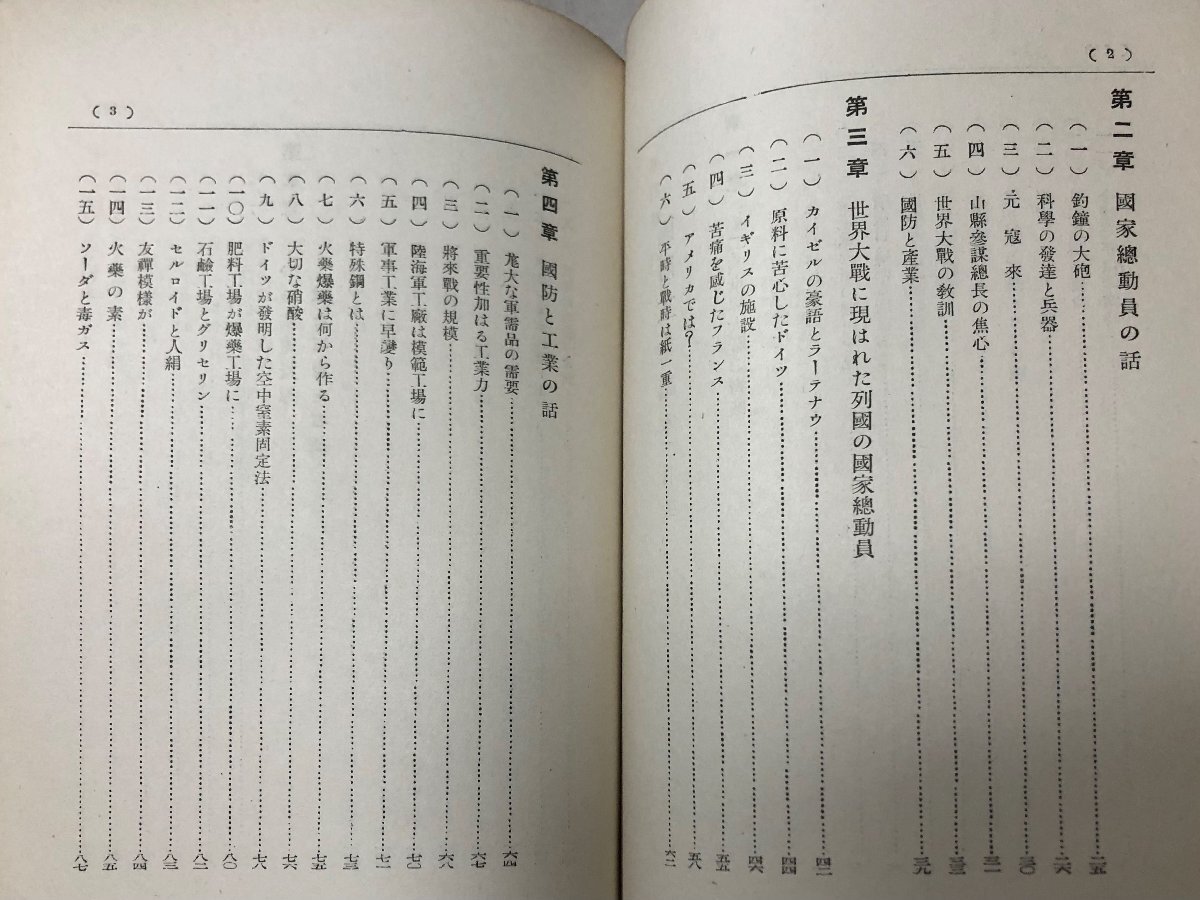 (2)
第二章 國家總動員の話
(一) 釣鐘の大砲……二五
(二) 科學の發達と兵器……二六
(三) 元寇來……三〇
(四) 山縣參謀總長の焦心……三一
(五) 世界大戰の敎訓……三三
(六) 國防と產業……三九
第三章 世界大戰に現はれた列國の國家總動員
(一) カイゼルの豪語とラーテナウ……四二
(二) 原料に苦心したドイツ……四四
(三) イギリスの施設……四六
(四) 苦痛を感じたフランス……五五
(五) アメリカでは?……五八
(六) 平時と戰時は紙一重……六二
(3)
第四章 國防と工業の話
(一) 尨大な軍需品の需要……六四
(二) 重要性加はる工業力……六七
(三) 將來戰の規模……六八
(四) 陸海軍工廠は模範工場に……七〇
(五) 軍事工業に早變り……七一
(六) 特殊鋼とは……七三
(七) 火藥爆藥は何から作る……七五
(八) 大切な硝酸……七六
(九) ドイツが發明した空中窒素固定法……七八
(一〇) 肥料工場が爆藥工場に……八〇
(一一) 石鹼工場とグリセリン……八二
(一二) セルロイドと人絹……八三
(一三) 友禪模樣が……八四
(一四) 火藥の素……八五
(一五) ソーダと毒ガス……八七